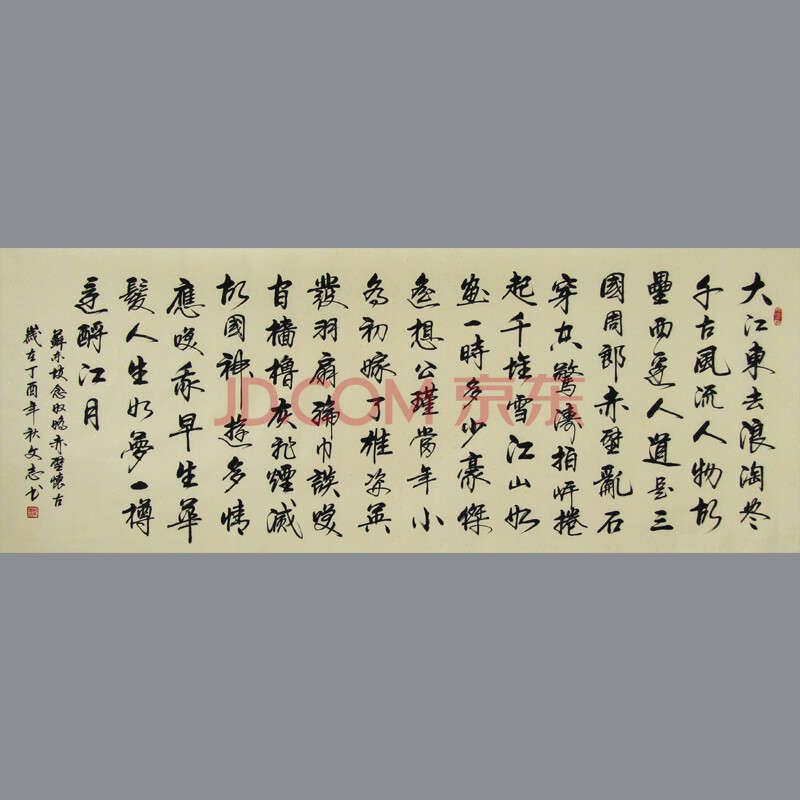 大江東去浪淘盡
千古風流人物故
壘西邊人道是三
國周郎赤壁亂石
穿空驚濤拍岸捲
起千堆雪江山如
畫一時多少豪傑
遙想公瑾當年小
喬初嫁了雄姿英
發羽扇綸巾談笑
間檣櫓灰飛煙滅
故國神遊多情
應笑我早生華
髮人生如夢一樽
還酹江月
蘇東坡念奴嬌赤壁懷古
歲在丁酉年秋文志书
JD.COM 京东